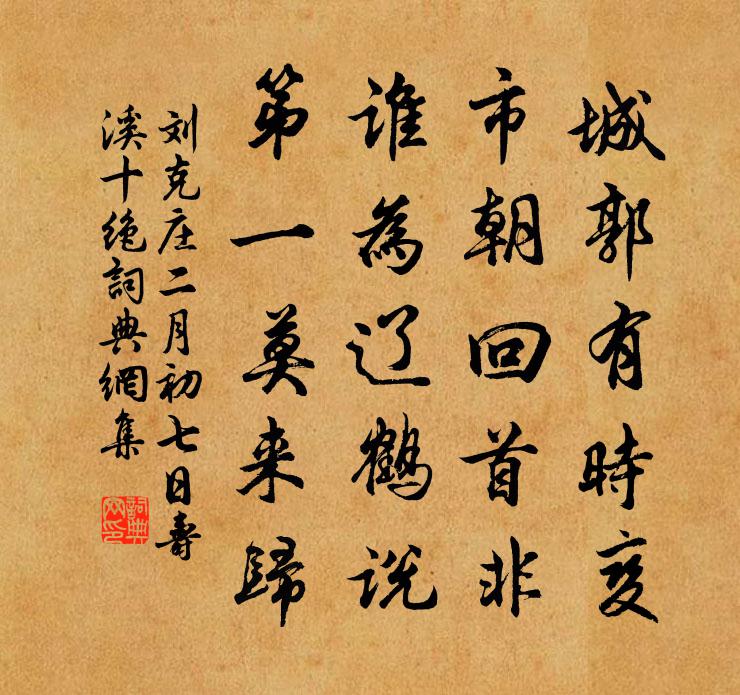 城郭有時变
市朝回首非
谁為辽鶴说
第一莫来歸
刘克庄二月初七日壽
溪十绝詞典網集
詞典網印